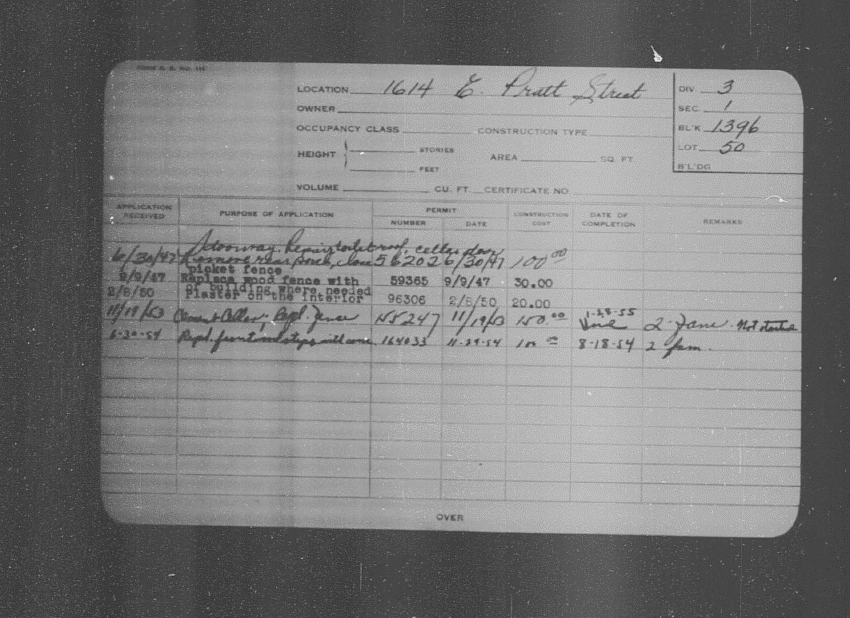 LOCATION 1614 E. Pratt Street
DIV. 3
OWNER
SEC. 1
OCCUPANCY CLASS CONSTRUCTION TYPE
BL'K 1396
HEIGHT STORIES
FEET
AREA SQ. FT.
LOT 50
B'L'DG
VOLUME CU. FT. CERTIFICATE NO.
APPLICATION RECEIVED PURPOSE OF APPLICATION PERMIT NUMBER DATE CONSTRUCTION COST DATE OF COMPLETION REMARKS
Doorway, Repair toilet roof, cellar door
6/30/47 Remove rear porch, close 56202 6/30/47 100.00
picket fence
9/9/47 Replace wood fence with 59365 9/9/47 30.00
of building where needed
2/8/50 Plaster on the interior 96306 2/8/50 20.00
11/19/53 Cement Cellar, Repl. fence 155247 11/19/53 150.00 1-28-55 2-Fam. Not started
6-30-54 Repl. front steps with 164033 11-29-54 100 8-18-54 2 fam.
OVER